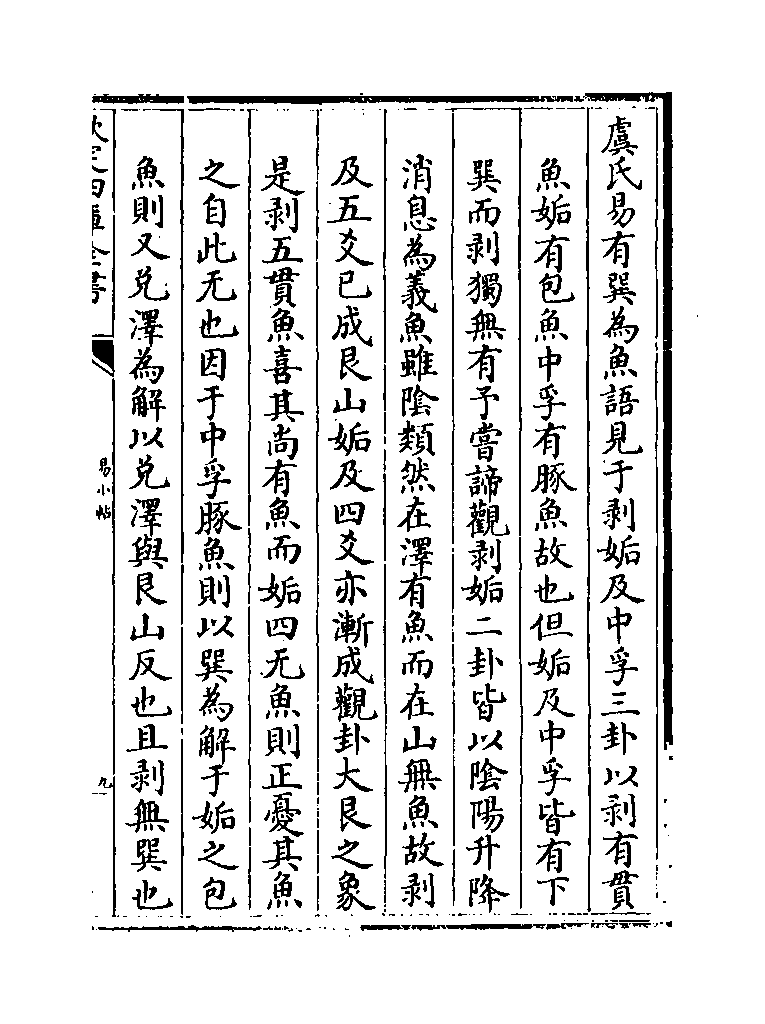 虞氏易有巽為魚語見于剥姤及中孚三卦以剥有貫
魚姤有包魚中孚有豚魚故也但姤及中孚皆有下
巽而剥獨無有予嘗諦觀剥姤二卦皆以陰陽升降
消息為義魚雖陰類然在澤有魚而在山無魚故剥
及五爻已成艮山姤及四爻亦漸成觀卦大艮之象
是剥五貫魚喜其尚有魚而姤四无魚則正憂其魚
之自此无也因于中孚豚魚則以巽為解于姤之包
魚則又兑澤為解以兑澤與艮山反也且剥無巽也
欽定四庫全書
易小帖
九